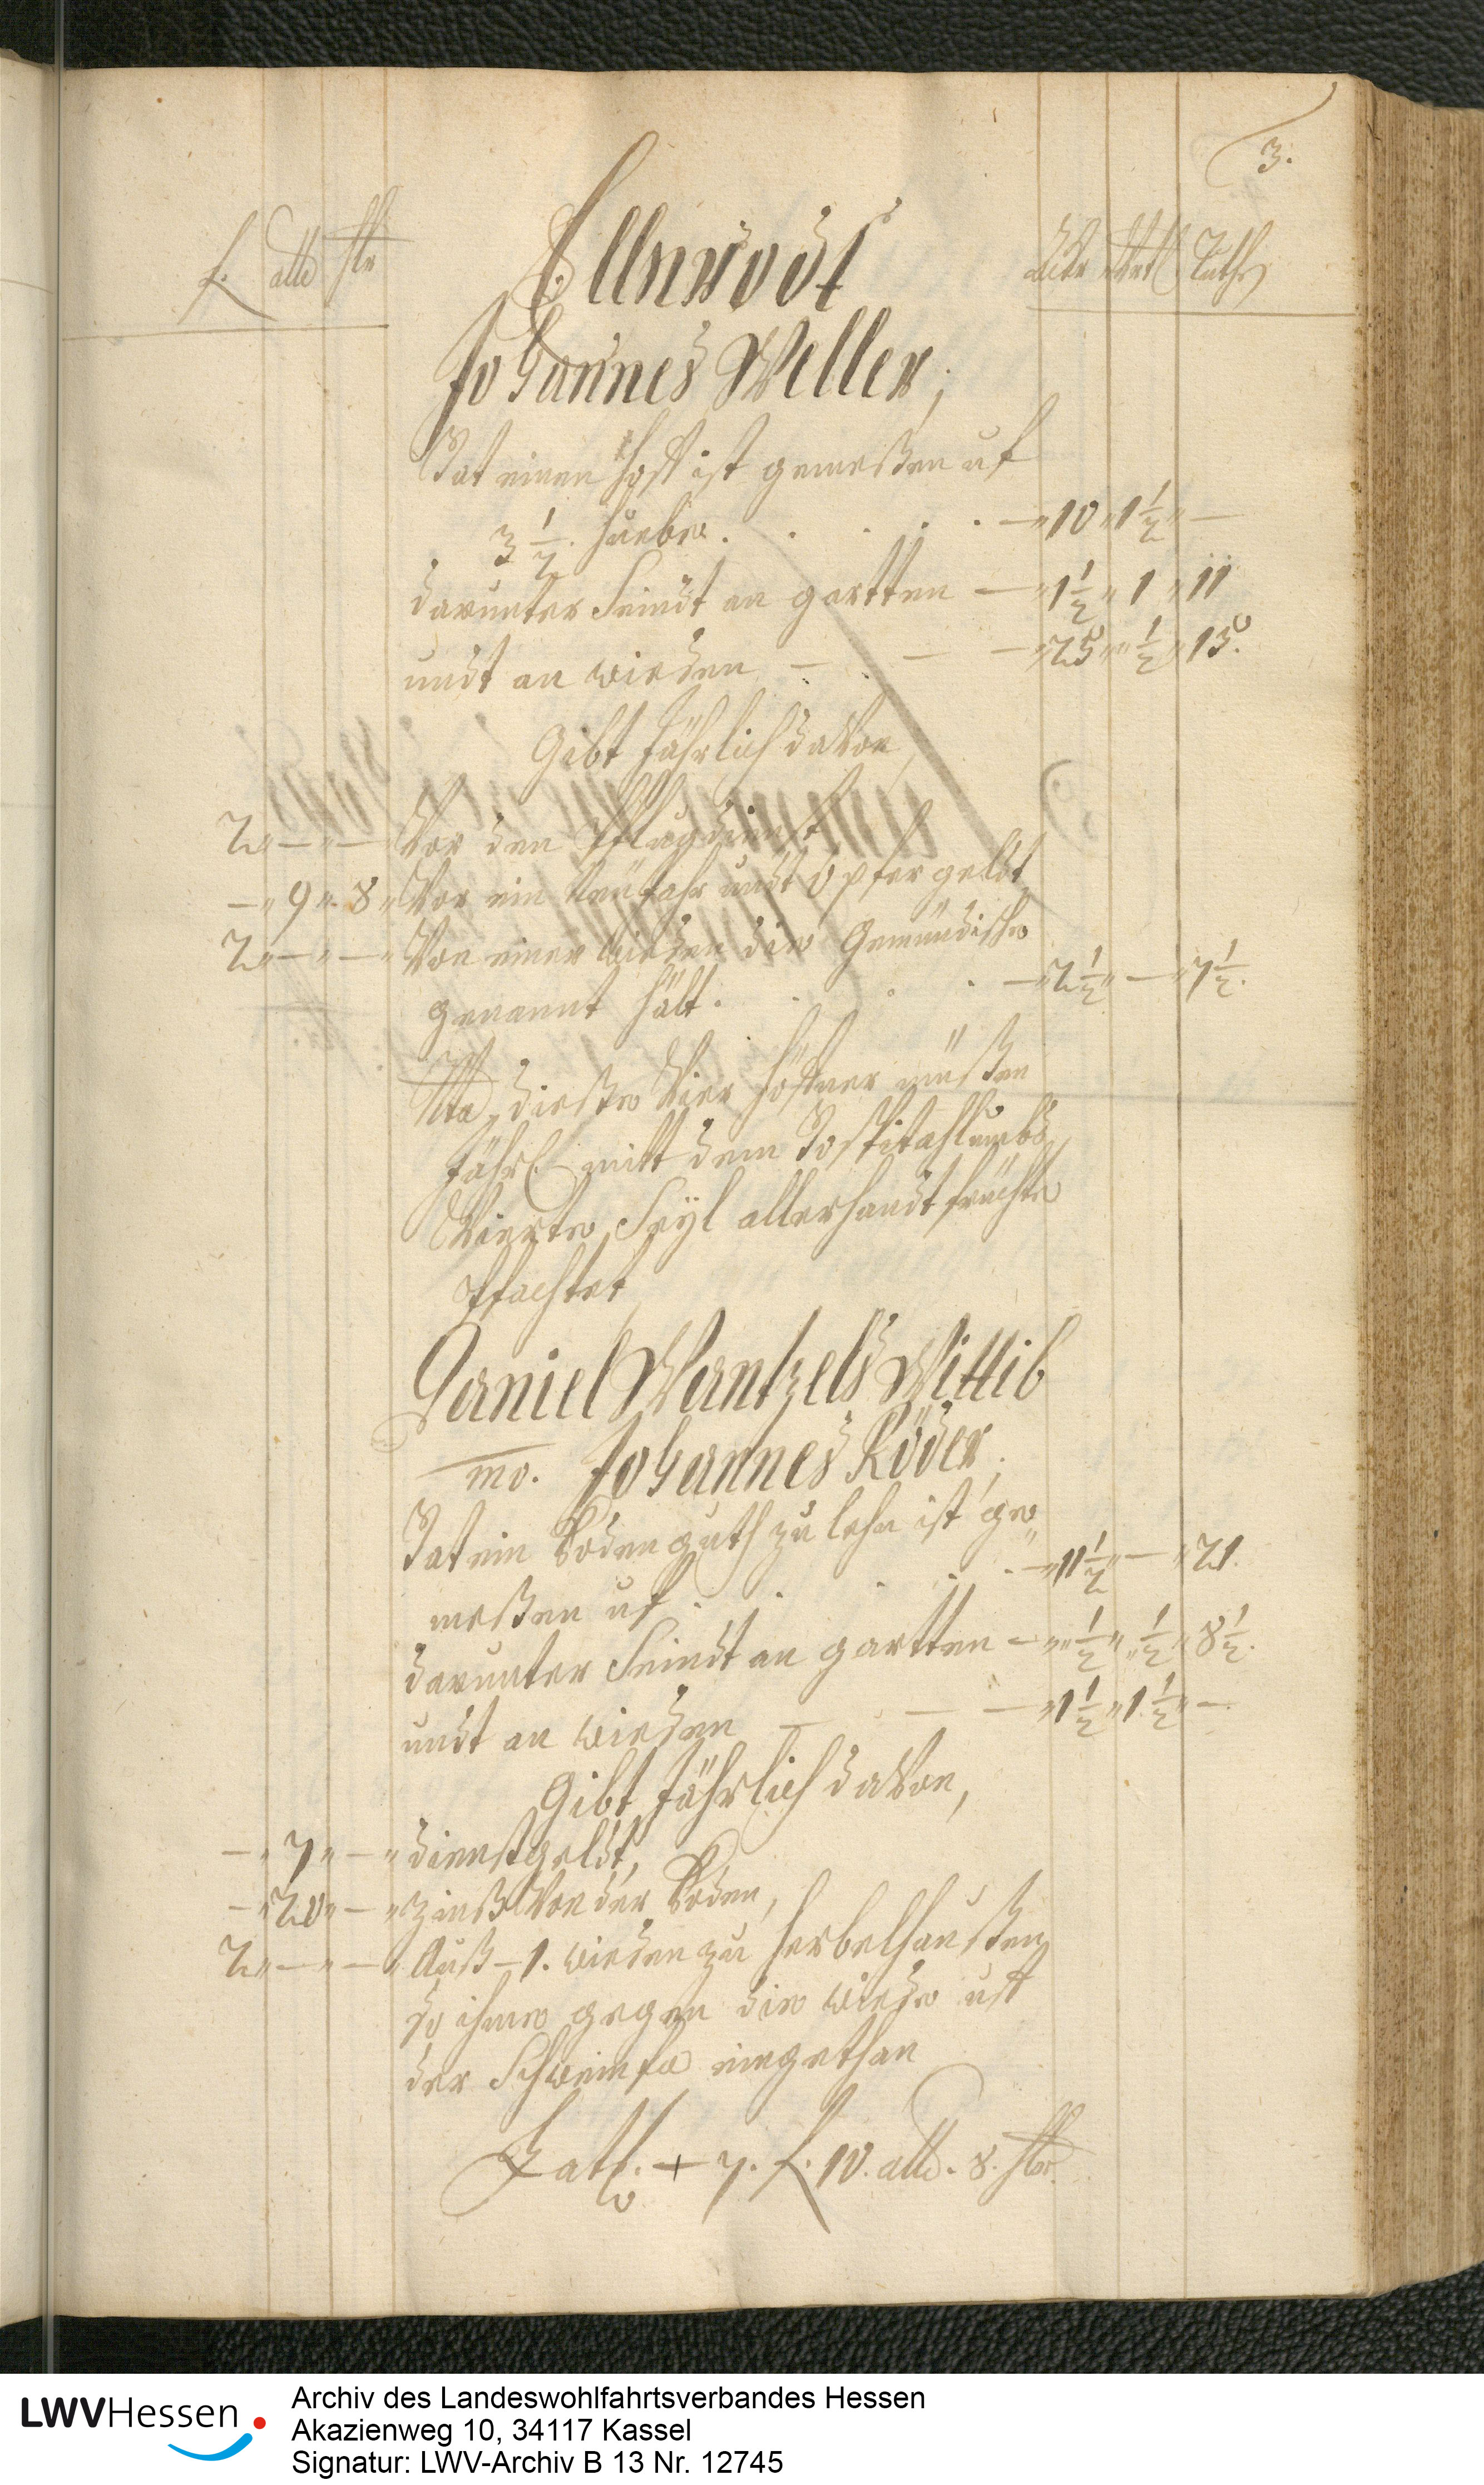 3.
f. alb hlr
Ellnrodt
Acker Vrtl Ruthe
Johannes Weller,
Hat einen Hoff ist gemeßen uf
3 1/2 huebe. . . . . — 10 " 1 1/2 " —
darunter Seindt an gartten — " 1 1/2 " 1 " 11
undt an wießen — — — " 25 " 1/2 " 13.
Gibt Jährlich davon,
2 " — " — " Vor den Pflugdienst
— " 9 " 8 " Vor ein Neujahr undt Opfergeldt
2 " — " — " Von einer wießen die Gemündische
genannt hält. . . . — " 2 1/2 " — " 7 1/2.
Nta. dieße Vier höffner müßen
Jährl. mitt dem Hospitahl umbs
Vierte Theyl allerhandt früchte
Pfachtet
Daniel Wantzels Wittib
mo. Johannes Röder,
Hat ein Bodenguth zu lehn ist ge=
meßen uf . . . . . — " 11 1/2 " — " 21.
darunter Seindt an gartten — " 1/2 " 1/2 " 8 1/2.
undt an wießen — — — " 1 1/2 " 1 1/2 " —
Gibt Jährlich davon,
— " 7 " — " dienstgeldt,
— " 20 " — " Zinß Von der Boden,
2 " — " — " Auß — 1. wießen zu Herbelhaußen
so ihme gegen die wieße uff
der Schweinfe eingethan
Latt. + 7. f. 10. alb. 8. hlr.
LWVHessen
Archiv des Landeswohlfahrtsverbandes Hessen
Akazienweg 10, 34117 Kassel
Signatur: LWV-Archiv B 13 Nr. 12745